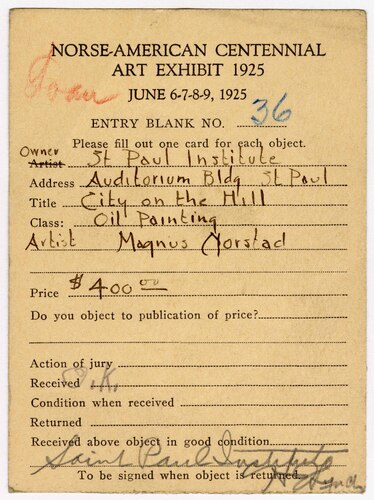 NORSE-AMERICAN CENTENNIAL
ART EXHIBIT 1925
Loan
JUNE 6-7-8-9, 1925
ENTRY BLANK NO. 36
Please fill out one card for each object.
Owner
Artist St Paul Institute
Address Auditorium Bldg St Paul
Title City on the Hill
Class: Oil Painting
Artist Magnus Norstad
Price $400 00
Do you object to publication of price?
Action of jury
Received O.K.
Condition when received
Returned
Received above object in good condition
Saint Paul Institute
To be signed when object is returned.